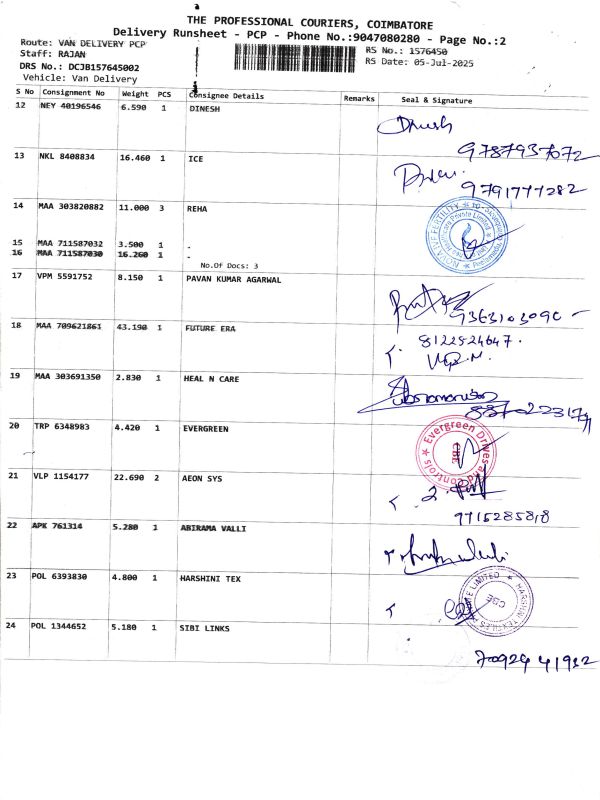 THE PROFESSIONAL COURIERS, COIMBATORE
Delivery Runsheet - PCP - Phone No.:9047080280 - Page No.:2
Route: VAN DELIVERY PCP
Staff: RAJAN
DRS No.: DCJB157645002
Vehicle: Van Delivery
RS No.: 1576450
RS Date: 05-Jul-2025
S No Consignment No Weight PCS Consignee Details Remarks Seal & Signature
12 NEY 40196546 6.590 1 DINESH
Dinesh
9787937072
13 NKL 8408834 16.460 1 ICE
9791777282
14 MAA 303820882 11.000 3 REHA
15 MAA 711587032 3.500 1 -
16 MAA 711587030 16.260 1 -
No.Of Docs: 3
17 VPM 5591752 8.150 1 PAVAN KUMAR AGARWAL
9363103090
18 MAA 709621861 43.190 1 FUTURE ERA
8122824647.
19 MAA 303691350 2.830 1 HEAL N CARE
20 TRP 6348983 4.420 1 EVERGREEN
Evergreen Drives and Controls
CBE
21 VLP 1154177 22.690 2 AEON SYS
9715285818
22 APK 761314 5.280 1 ABIRAMA VALLI
23 POL 6393830 4.800 1 HARSHINI TEX
CBE
24 POL 1344652 5.180 1 SIBI LINKS
70924 41912